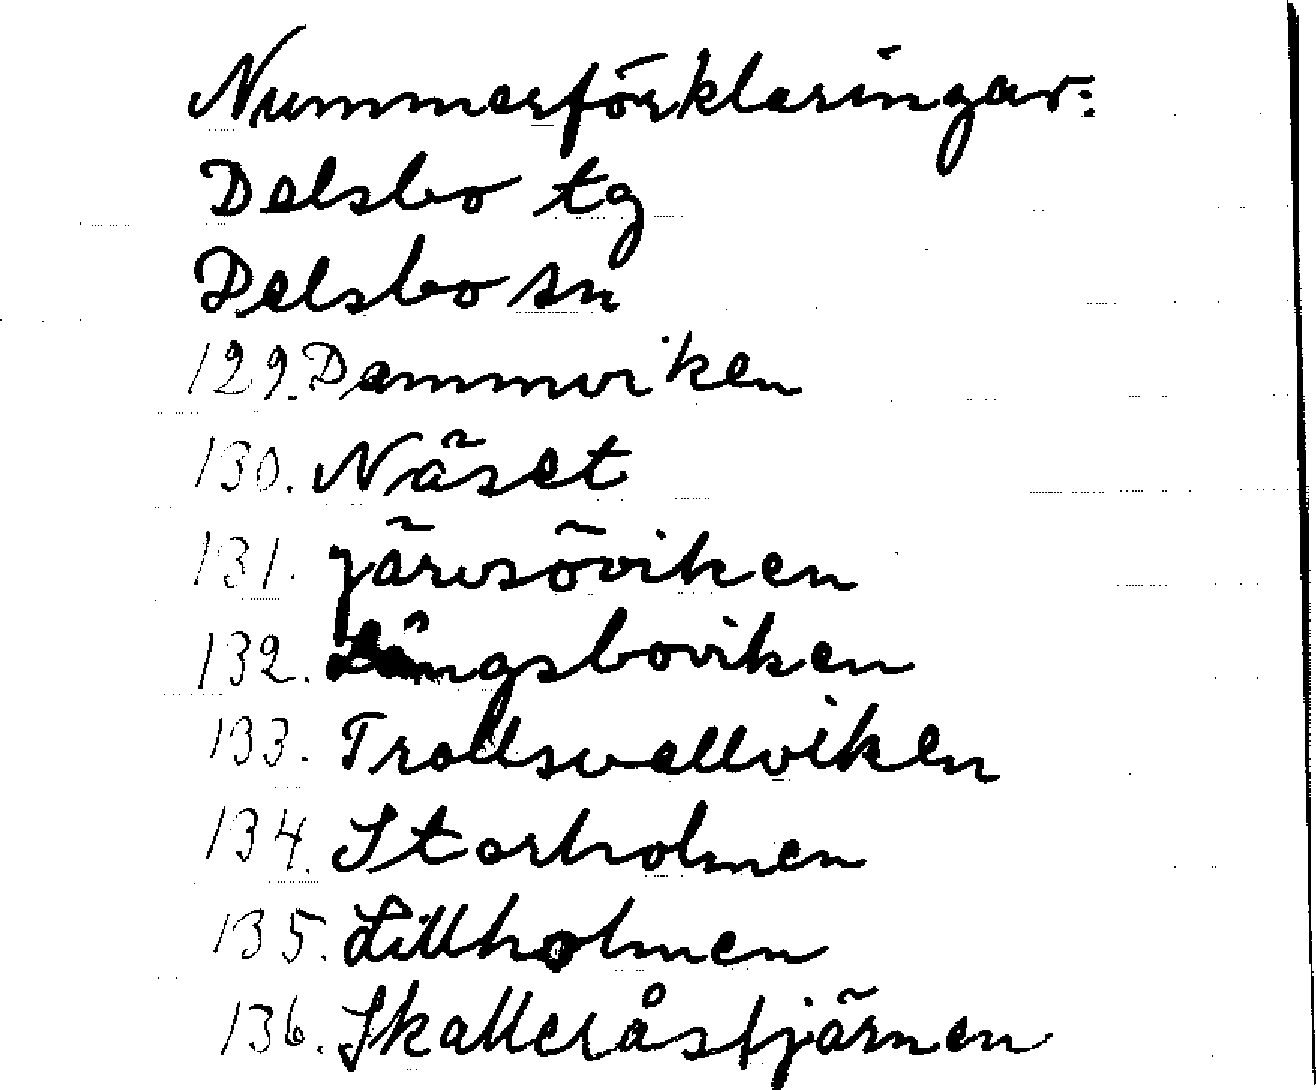 Nummerförklaringar:
Delsbo tg
Delsbo sn
129. Dammviken
130. Näset
131. Järvsöviken
132. Långsboviken
133. Trollsvallviken
134. Storholmen
135. Lillholmen
136. Skalleråstjärnen